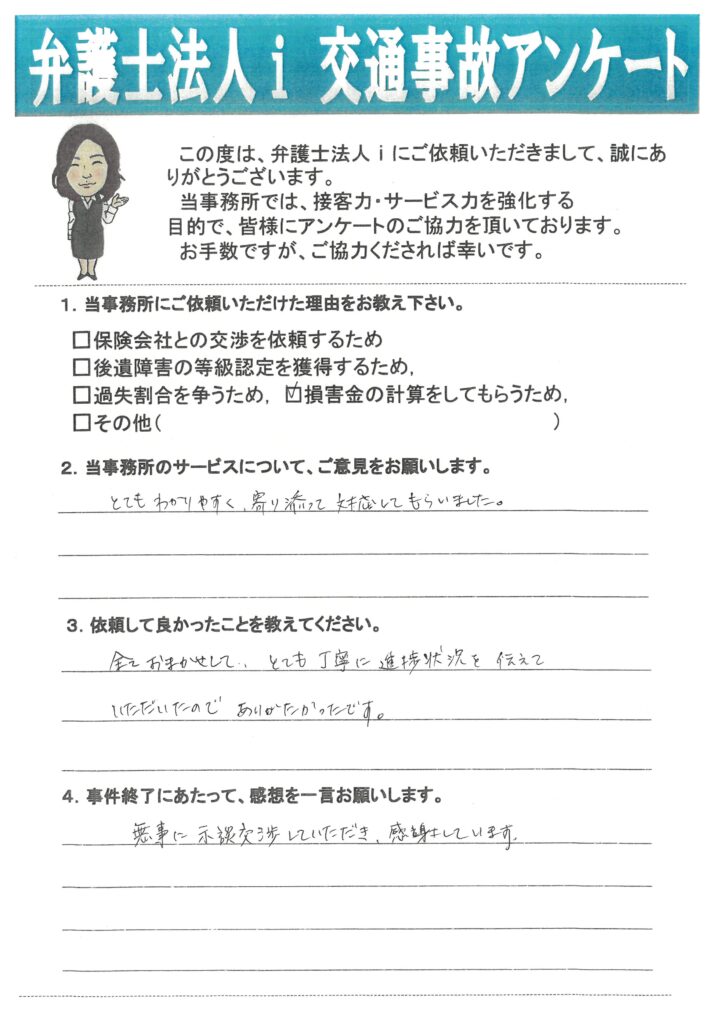 弁護士法人ｉ 交通事故アンケート
この度は、弁護士法人ｉにご依頼いただきまして、誠にあ
りがとうございます。
当事務所では、接客力・サービス力を強化する
目的で、皆様にアンケートのご協力を頂いております。
お手数ですが、ご協力くだされば幸いです。
１．当事務所にご依頼いただけた理由をお教え下さい。
□保険会社との交渉を依頼するため
□後遺障害の等級認定を獲得するため，
□過失割合を争うため， ☑損害金の計算をしてもらうため，
□その他（　　　　　　　　　　　　　　　　　　　　）
２．当事務所のサービスについて、ご意見をお願いします。
とてもわかりやすく、寄り添って対応してもらいました。
３．依頼して良かったことを教えてください。
全ておまかせして、とても丁寧に進捗状況を伝えて
いただいたのでありがたかったです。
４．事件終了にあたって、感想を一言お願いします。
無事に示談交渉していただき、感謝しています。